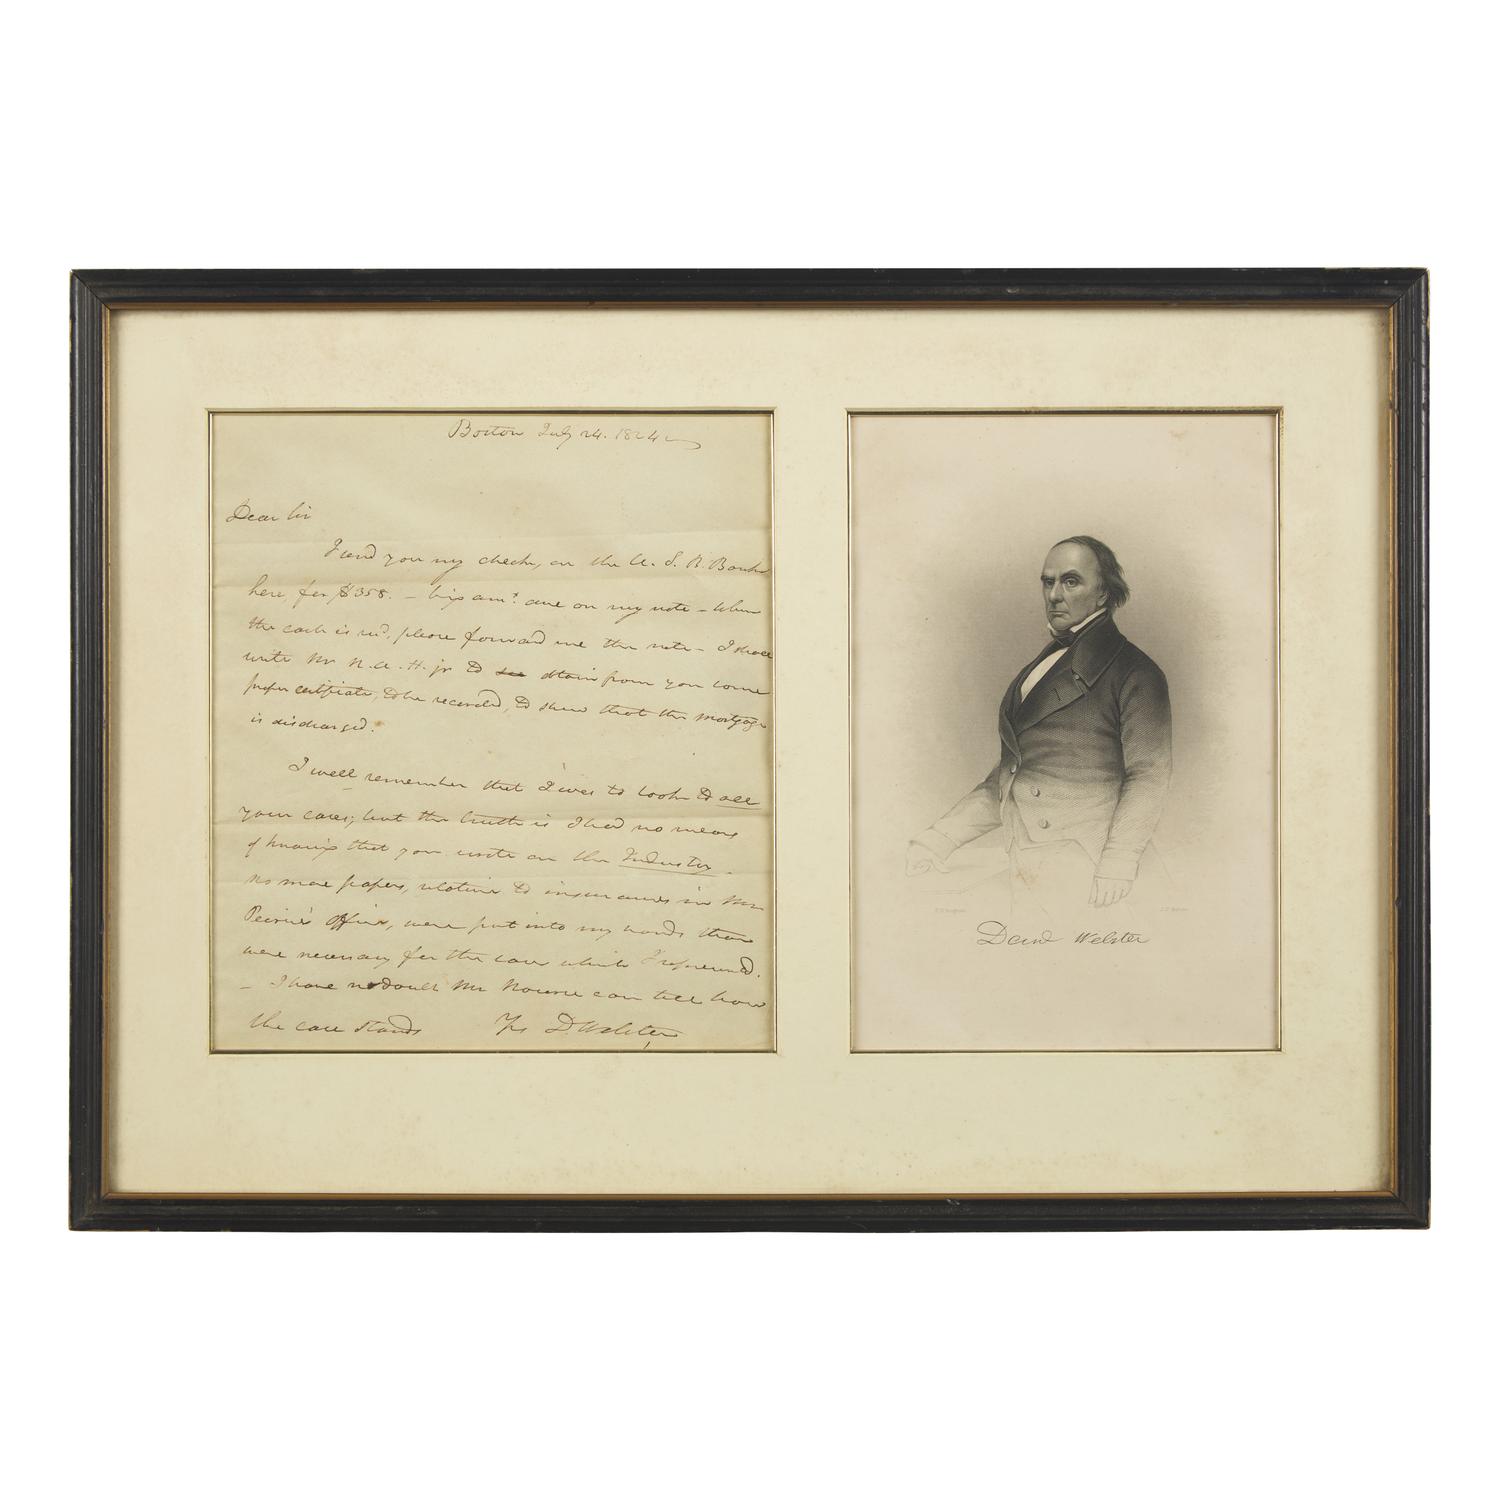 Boston July 24. 1824
Dear Sir
I send you my check, on the U. S. B. Bank
here, for $358. - amt. due on my note - When
the cash is recd, please forward me the note - I shall
write Mr N. A. H. jr to see obtain from you some
proper certificate, to be recorded, to shew that the mortgage
is discharged.
I well remember that I was to look to all
your cases; but the truth is I had no means
of knowing that you wrote on the Industry.
no more papers, relative to insurances in Mr
Peirce's office, were put into my hands than
were necessary for the case which I represented.
- I have no doubt Mr Nourse can tell how
the case stands Yrs D. Webster
Danl Webster